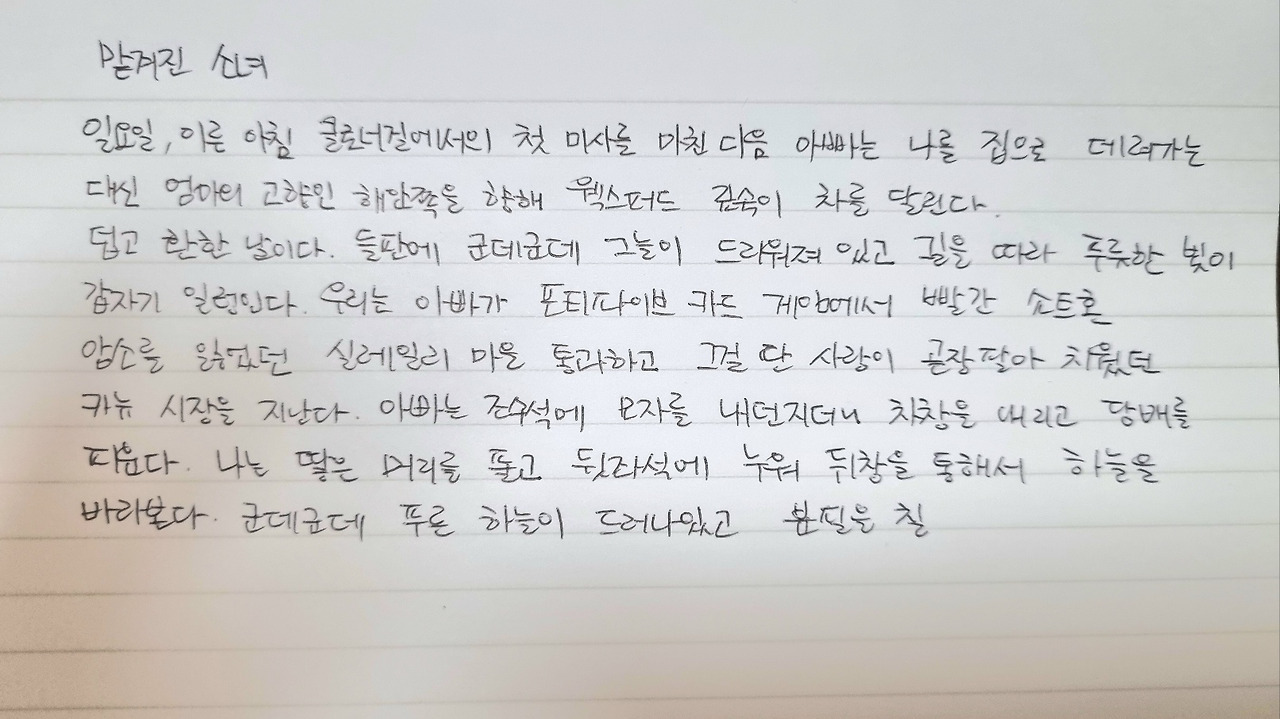 맡겨진 소녀
일요일, 이른 아침 클로너걸에서의 첫 미사를 마친 다음 아빠는 나를 집으로 데려가는
대신 엄마의 고향인 해안쪽을 향해 웩스퍼드 깊숙이 차를 달린다.
덥고 환한 날이다. 들판에 군데군데 그늘이 드리워져 있고 길을 따라 푸릇한 빛이
갑자기 일렁인다. 우리는 아빠가 포티파이브 카드 게임에서 빨간 쇼트혼
암소를 잃었던 실레일리 마을 통과하고 그걸 딴 사람이 곧장 팔아 치웠던
카뉴 시장을 지난다. 아빠는 조수석에 모자를 내던지더니 차창을 내리고 담배를
피운다. 나는 땋은 머리를 풀고 뒷좌석에 누워 뒤창을 통해서 하늘을
바라본다. 군데군데 푸른 하늘이 드러나있고 분필을 칠